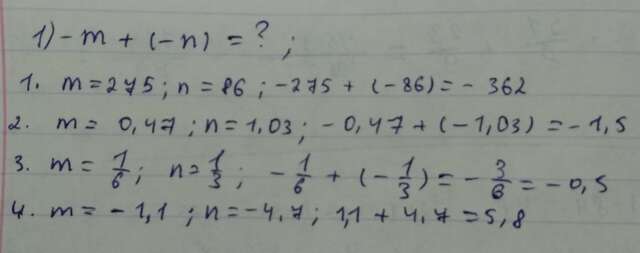 1) - m + (-n) = ? ;
1. m = 275 ; n = 86 ; -275 + (-86) = - 362
2. m = 0,47 ; n = 1,03 ; - 0,47 + (-1,03) = - 1,5
3. m = 1/6 ; n = 1/3 ; - 1/6 + (- 1/3) = - 3/6 = - 0,5
4. m = - 1,1 ; n = - 4.7 ; 1,1 + 4.7 = 5,8